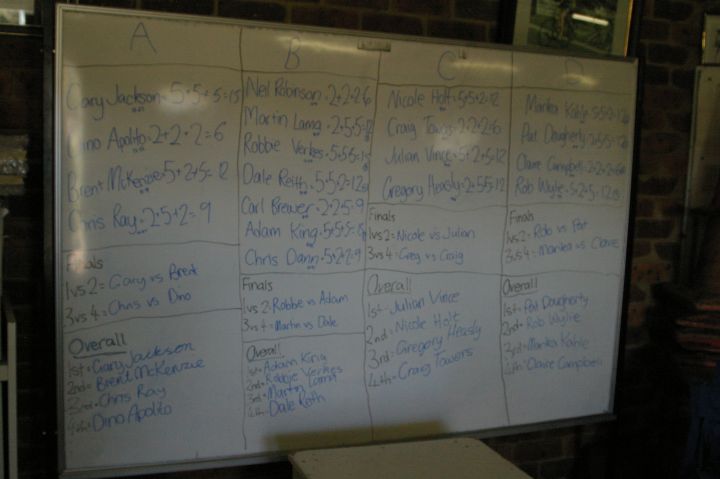 A
Gary Jackson = 5+5+5=15
Dino Apolito = 2+2+2=6
Brent McKenzie = 5+2+5=12
Chris Ray = 2+5+2=9
Finals
1vs2= Gary vs Brent
3vs4= Chris vs Dino
Overall
1st= Gary Jackson
2nd= Brent McKenzie
3rd= Chris Ray
4th= Dino Apolito
B
Neil Robinson = 2+2+2=6
Martin Lama = 2+5+5=12
Robbie Verkes = 5+5+5=15
Dale Reith = 5+5+2=12
Carl Brewer = 2+2+5=9
Adam King = 5+5+5=15
Chris Dann = 5+2+2=9
Finals
1vs2= Robbie vs Adam
3vs4= Martin vs Dale
Overall
1st= Adam King
2nd= Robbie Verkes
3rd= Martin Lama
4th= Dale Reith
C
Nicole Holt = 5+5+2=12
Craig Towers = 2+2+2=6
Julian Vince = 5+2+5=12
Gregory Heasly = 2+5+5=12
Finals
1vs2= Nicole vs Julian
3vs4= Greg vs Craig
Overall
1st= Julian Vince
2nd= Nicole Holt
3rd= Gregory Heasly
4th= Craig Towers
D
Marika Kahle
Pat Dougherty
Claire Campbell
Rob Wylie
Finals
1vs2= Rob vs Pat
3vs4= Marika vs Claire
Overall
1st= Pat Dougherty
2nd= Rob Wylie
3rd= Marika Kahle
4th= Claire Campbell